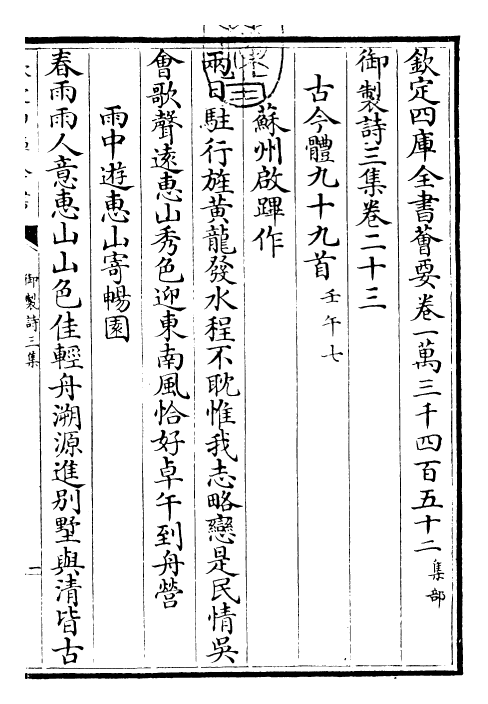 欽定四庫全書薈要卷一萬三千四百五十二集部
御製詩三集卷二十三
古今體九十九首壬午七
蘇州啟蹕作
兩日駐行旌黃龍發水程不耽惟我志略戀是民情吳
會歌聲遠惠山秀色迎東南風恰好卓午到舟營
雨中遊惠山寄暢園
春雨雨人意惠山山色佳輕舟溯源進别墅與清皆古
御製詩三集
一